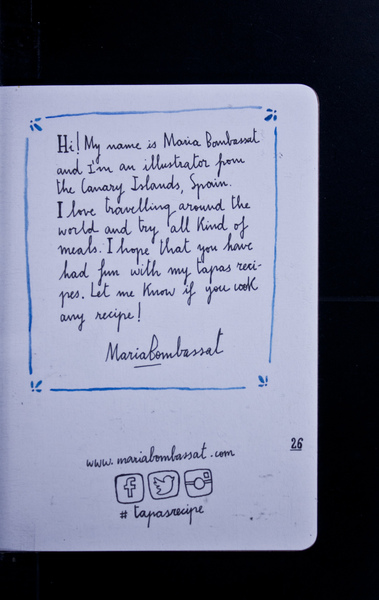 Hi! My name is Maria Bombassat
and I'm an illustrator from
the Canary Islands, Spain.
I love travelling around the
world and try all kind of
meals. I hope that you have
had fun with my tapas reci-
pes. Let me know if you cook
any recipe!
Maria Bombassat
26
www.mariabombassat.com
f
# tapasrecipe